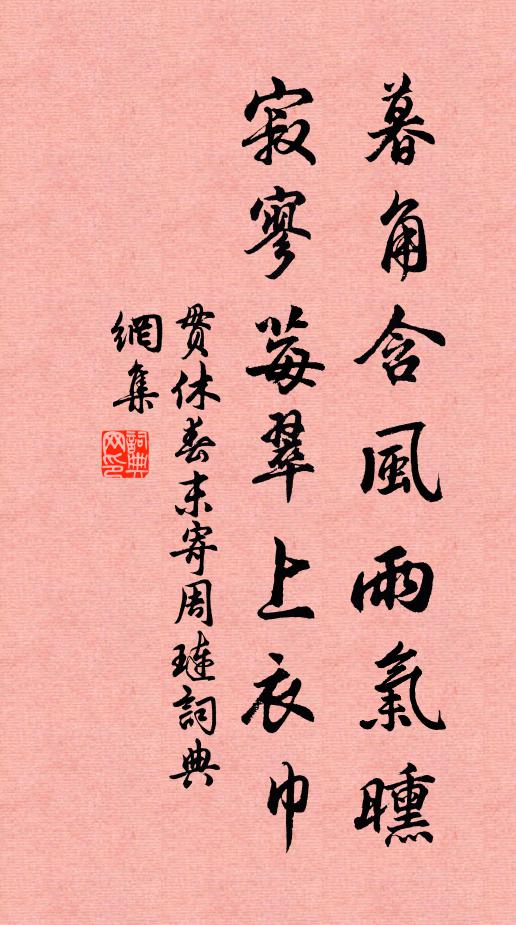 暮角含風雨氣曛
寂寥莓翠上衣巾
貫休春末寄周璉詞典
網集
詞典网印